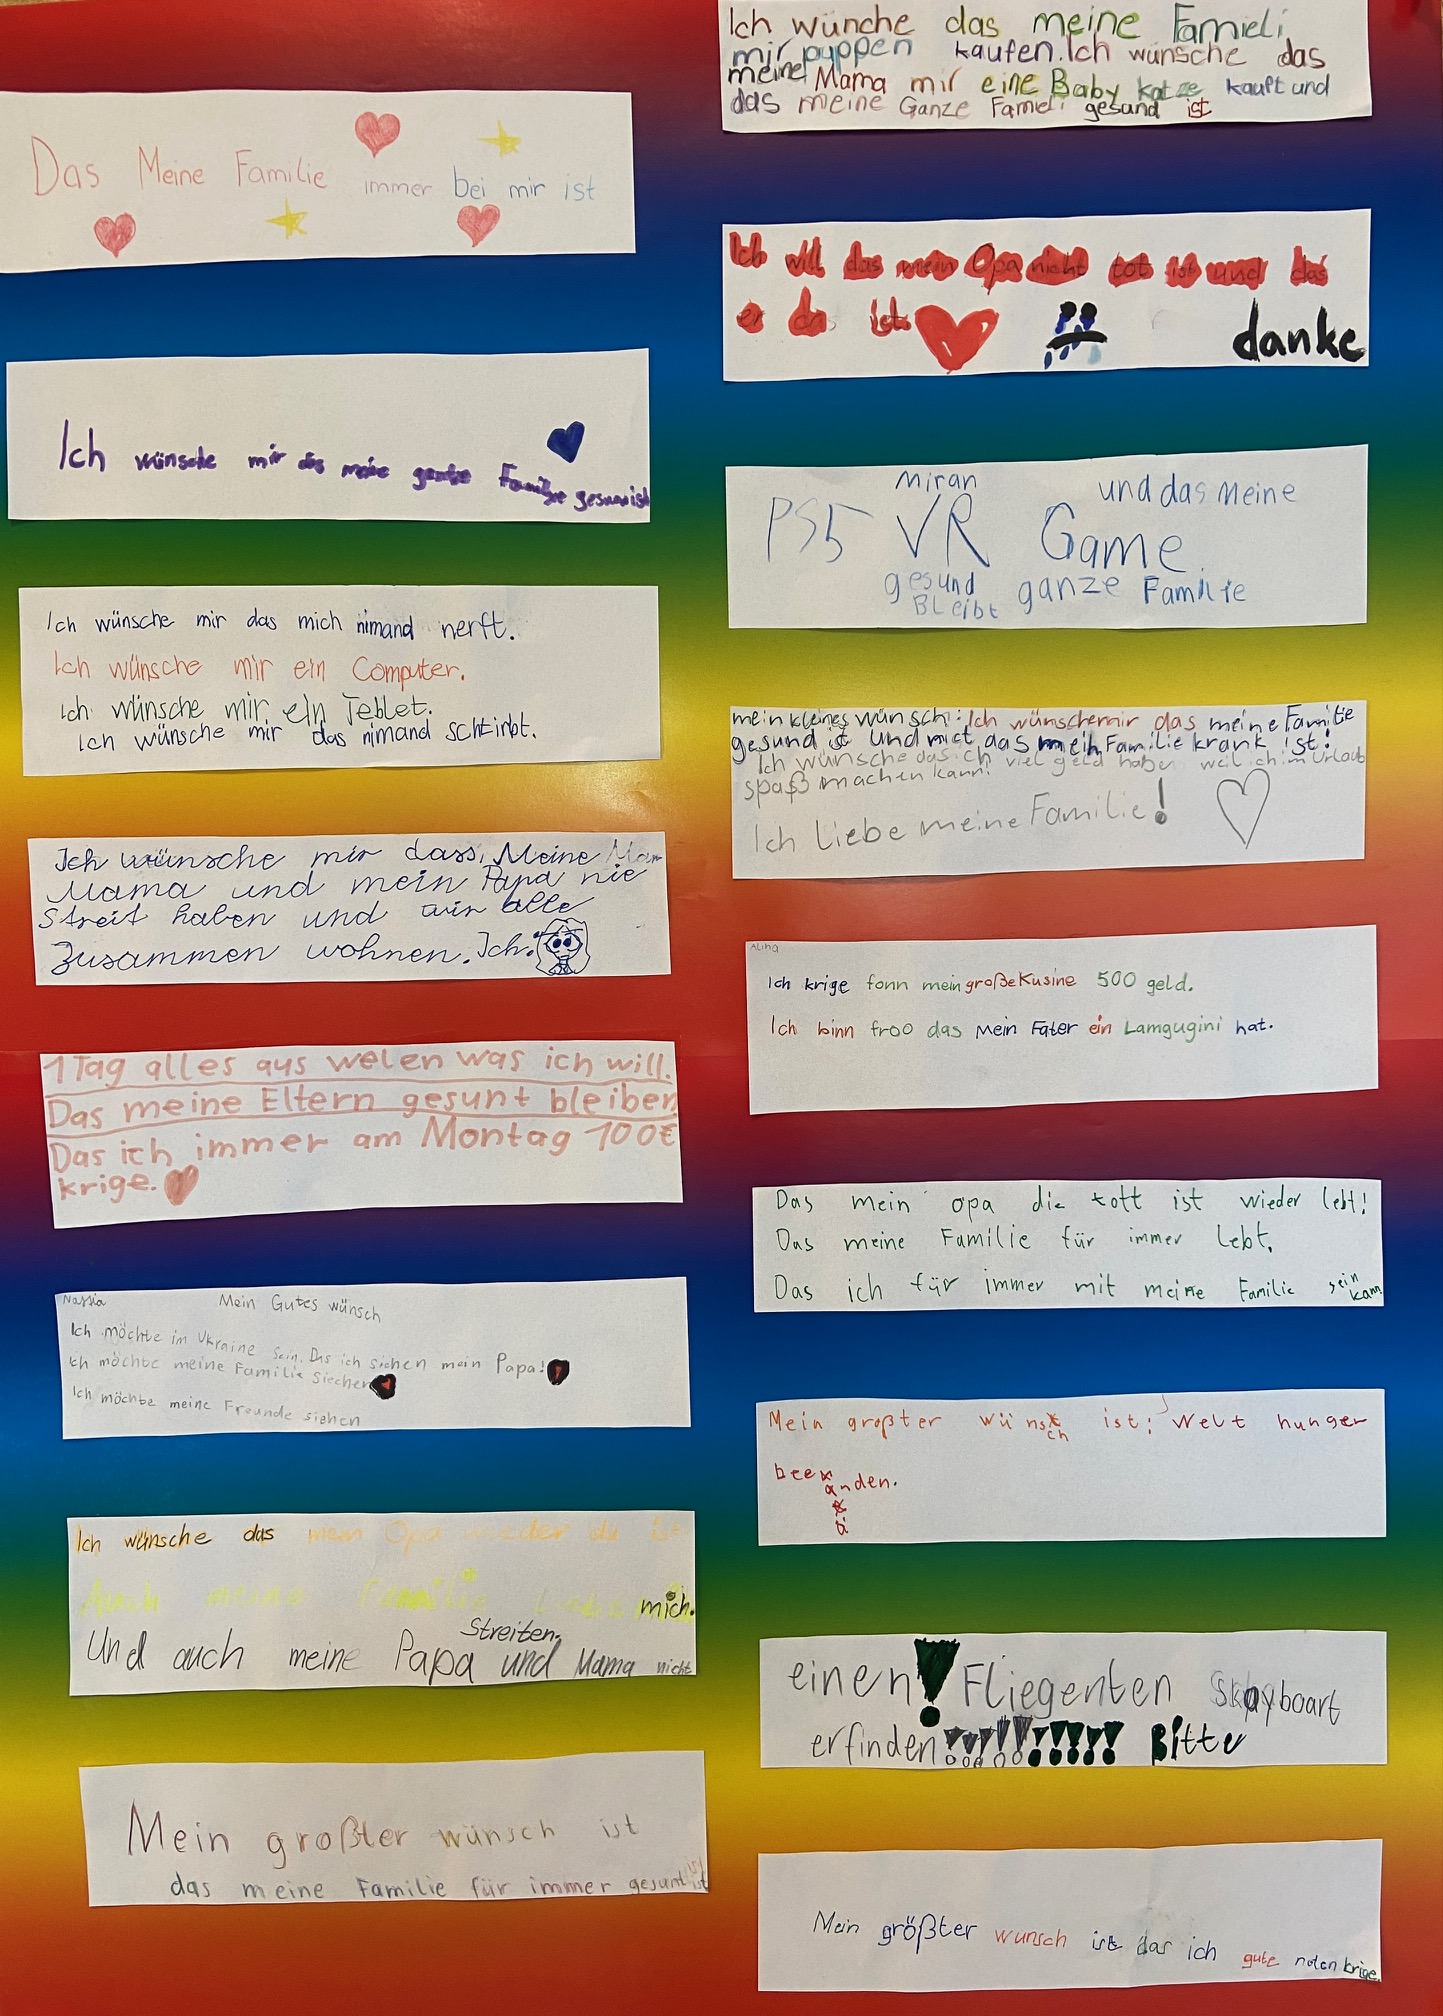 Das Meine Familie immer bei mir ist
Ich wünsche mir das meine ganze Familie gesund ist
Ich wünsche mir das mich nimand nerft.
Ich wünsche mir ein Computer.
Ich wünsche mir ein Teblet.
Ich wünsche mir das nimand schtirbt.
Ich wünsche mir dass, Meine Mam
Mama und mein Papa nie
Streit haben und wir alle
Zusammen wohnen. Ich:
1 Tag alles aus welen was ich will.
Das meine Eltern gesunt bleiben
Das ich immer am Montag 100€
krige.
Nassia Mein Gutes wünsch
Ich möchte im Ukraine sein. Das ich siehen mein Papa!
Ich möchte meine Familie siechen
Ich möchte meine Freunde siehen
Ich wünsche das mein Opa wieder da ist
Auch meine Familie Liebe mich.
Streiten.
Und auch meine Papa und Mama nicht
Mein großter wünsch ist
das meine Familie für immer gesunt ist
Ich wünche das meine Famieli
mir puppen kaufen. Ich wünsche das
meine Mama mir eine Baby katze kauft und
das meine Ganze Famieli gesund ist
Ich will das mein Opa nicht tot ist und das
er da ist danke
Miran und das Meine
PS5 VR Game
gesund ganze Familie
Bleibt
mein kleines wünsch: Ich wünsche mir das meine Familie
gesund ist und nict das mein Familie krank ist!
Ich wünsche das ich viel geld haben weil ich im Urlaub
spaß machen kann.
Ich liebe meine Familie!
Alina
Ich krige fonn mein große Kusine 500 geld.
Ich binn froo das Mein Fater ein Lamgugini hat.
Das mein opa die tott ist wieder lebt!
Das meine Familie für immer Lebt.
Das ich für immer mit meine Familie sein
kann
Mein großter wünsch ist: Welt hunger
beeanden.
einen! Fliegenten Skayboart
erfinden!!!!!!!!!!! Bitte
Mein größter wunsch ist das ich gute noten krige.